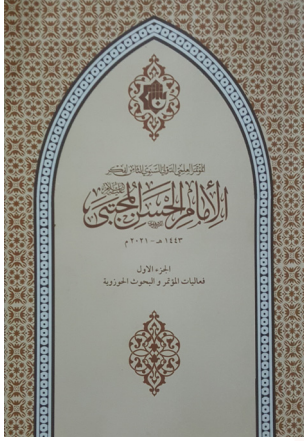 المؤتمر العلمي الدولي السنوي
الإمام الحسن المجتبى
١٤٤٣ هـ - ٢٠٢١ م
الجزء الاول
فعاليات المؤتمر و البحوث الحوزوية